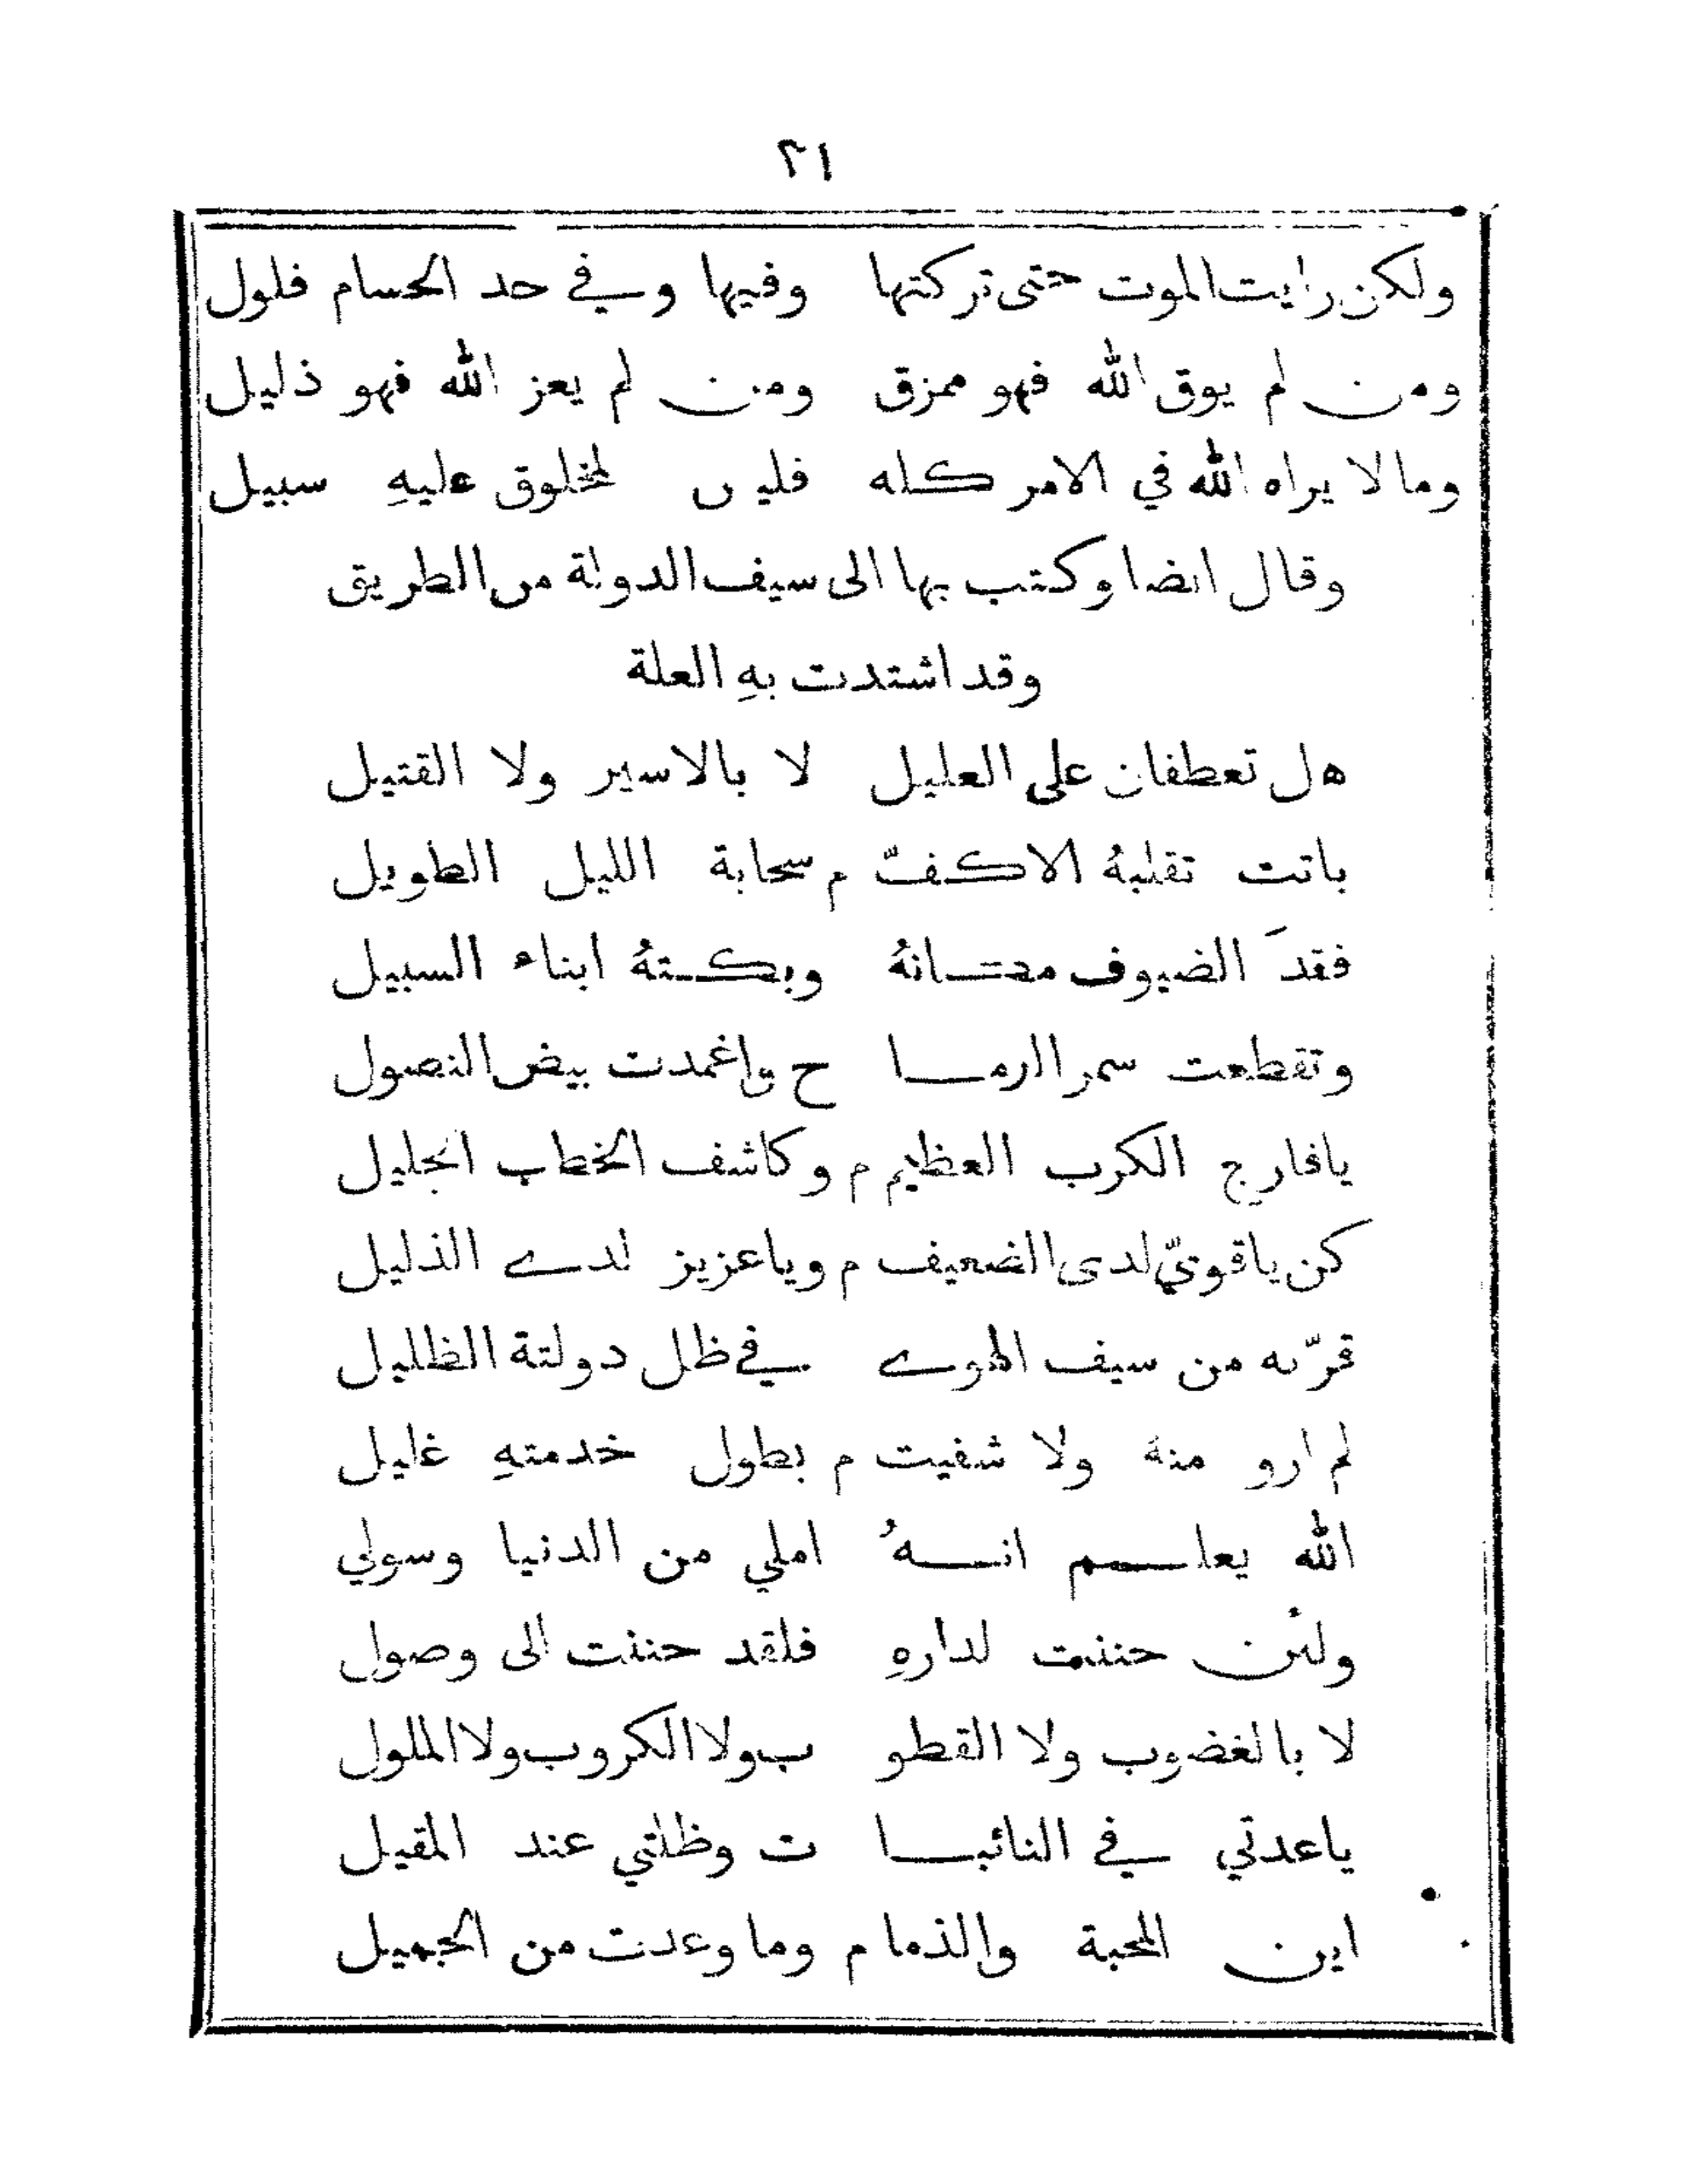 ٢١
ولكن رايت الموت حتى تركتها وفيها وفي حد الحسام فلول
ومن لم يوق الله فهو ممزق ومن لم يعز الله فهو ذليل
وما لا يراه الله في الامر كله فليس لمخلوق عليهِ سبيل
وقال ايضا وكتب بها الى سيف الدولة من الطريق
وقد اشتدت بهِ العلة
هل تعطفان على العليل لا بالاسير ولا القتيل
باتت تقلبهُ الاكفّ م سحابة الليل الطويل
فقدَ الضيوف مكانهُ وبكتهُ ابناء السبيل
وتقطعت سمر الرما ح واغمدت بيض النصول
يافارج الكرب العظيم م وكاشف الخطاب الجليل
كن ياقويّ لدى الضعيف م وياعزيز لدى الذليل
قرّبه من سيف الهوى في ظل دولتة الظليل
لم ارو منهُ ولا شفيت م بطول خدمتهِ غليل
الله يعلم انهُ املي من الدنيا وسولي
ولئن حننت لدارهِ فلقد حننت الى وصول
لا بالغضوب ولا القطو ب ولا الكروب ولا الملول
ياعدتي في النائبا ت وظلتي عند المقيل
اين المحبة والذما م وما وعدت من الجميل